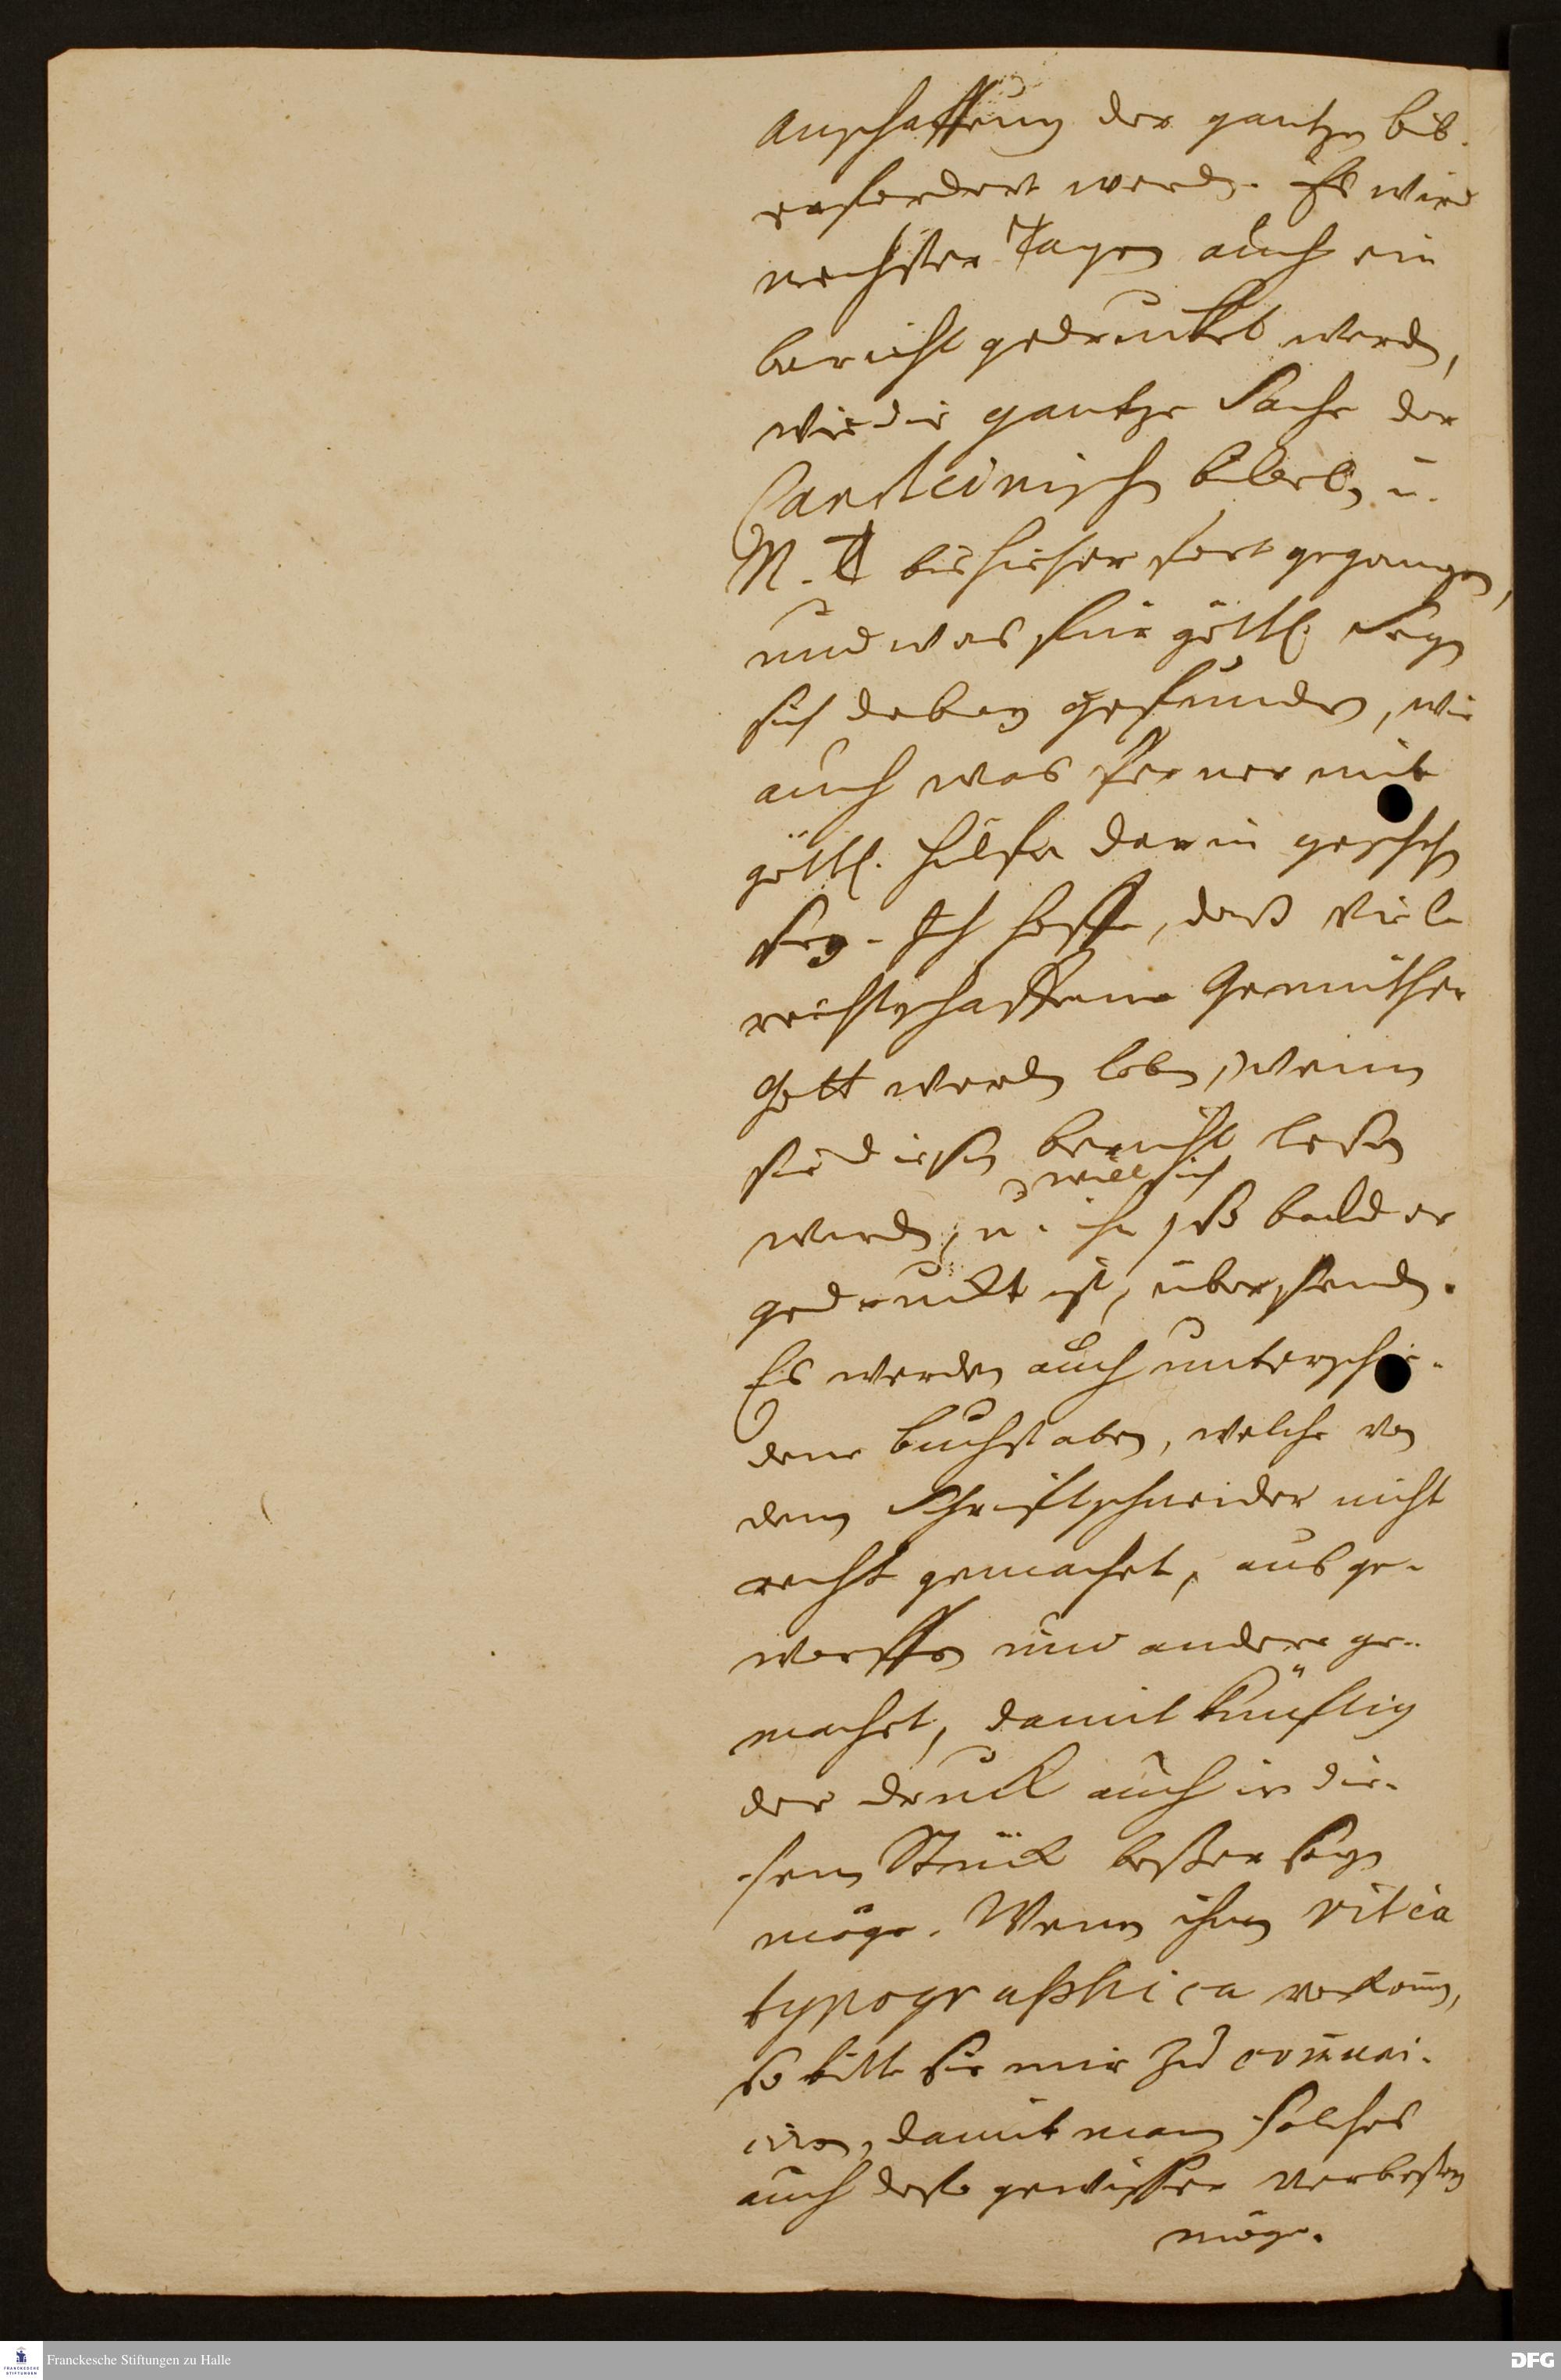 anschaffung der gantzen bib.
erfordert werden. Es wird
nechster Tagen auch ein
bericht gedrucket werden,
wie die gantze Sache der
Cansteinischen bibeln u.
N. T. bishieher fort gegangen,
und was für göttl. Segen
sich dabey gefunden, wie
auch was ferner mit
göttl. hülfe darin geschehen
sey. Ich hoffe, daß viele
rechtschaffene Gemüther
Gott werden loben, wenn
sie diesen bericht lesen
will ich
werden, u. ihn so bald er
gedruckt ist, übersenden.
Es werden auch unterschie-
dene buchstaben, welche von
dem Schriftschneider nicht
recht gemachet, ausge-
worffen und andere ge-
machet, damit künftig
der druck auch in die-
sem Stück beßer seyn
möge. Wenn ihnen vitia
typographica vorkom̄en,
so bitte sie mir zu com̄uni-
ciren, damit man solches
auch desto gewisser verbeßern
möge.
Franckesche Stiftungen zu Halle
FRANCKESCHE
STIFTUNGEN
DFG